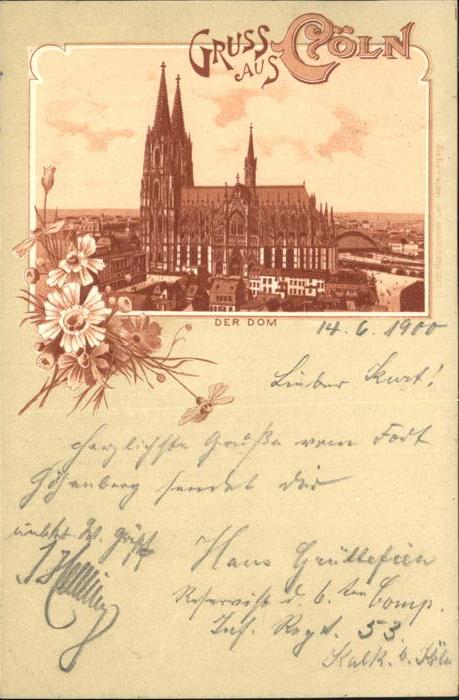 GRUSS
AUS
CÖLN
DER DOM
14. 6. 1900
Lieber Kurt!
Herzlichste Grüße vom Fort
sendet dir
Hans
Reservist d. 6. ten Comp.
Inf. Regt. 53.
Kalk. b. Köln